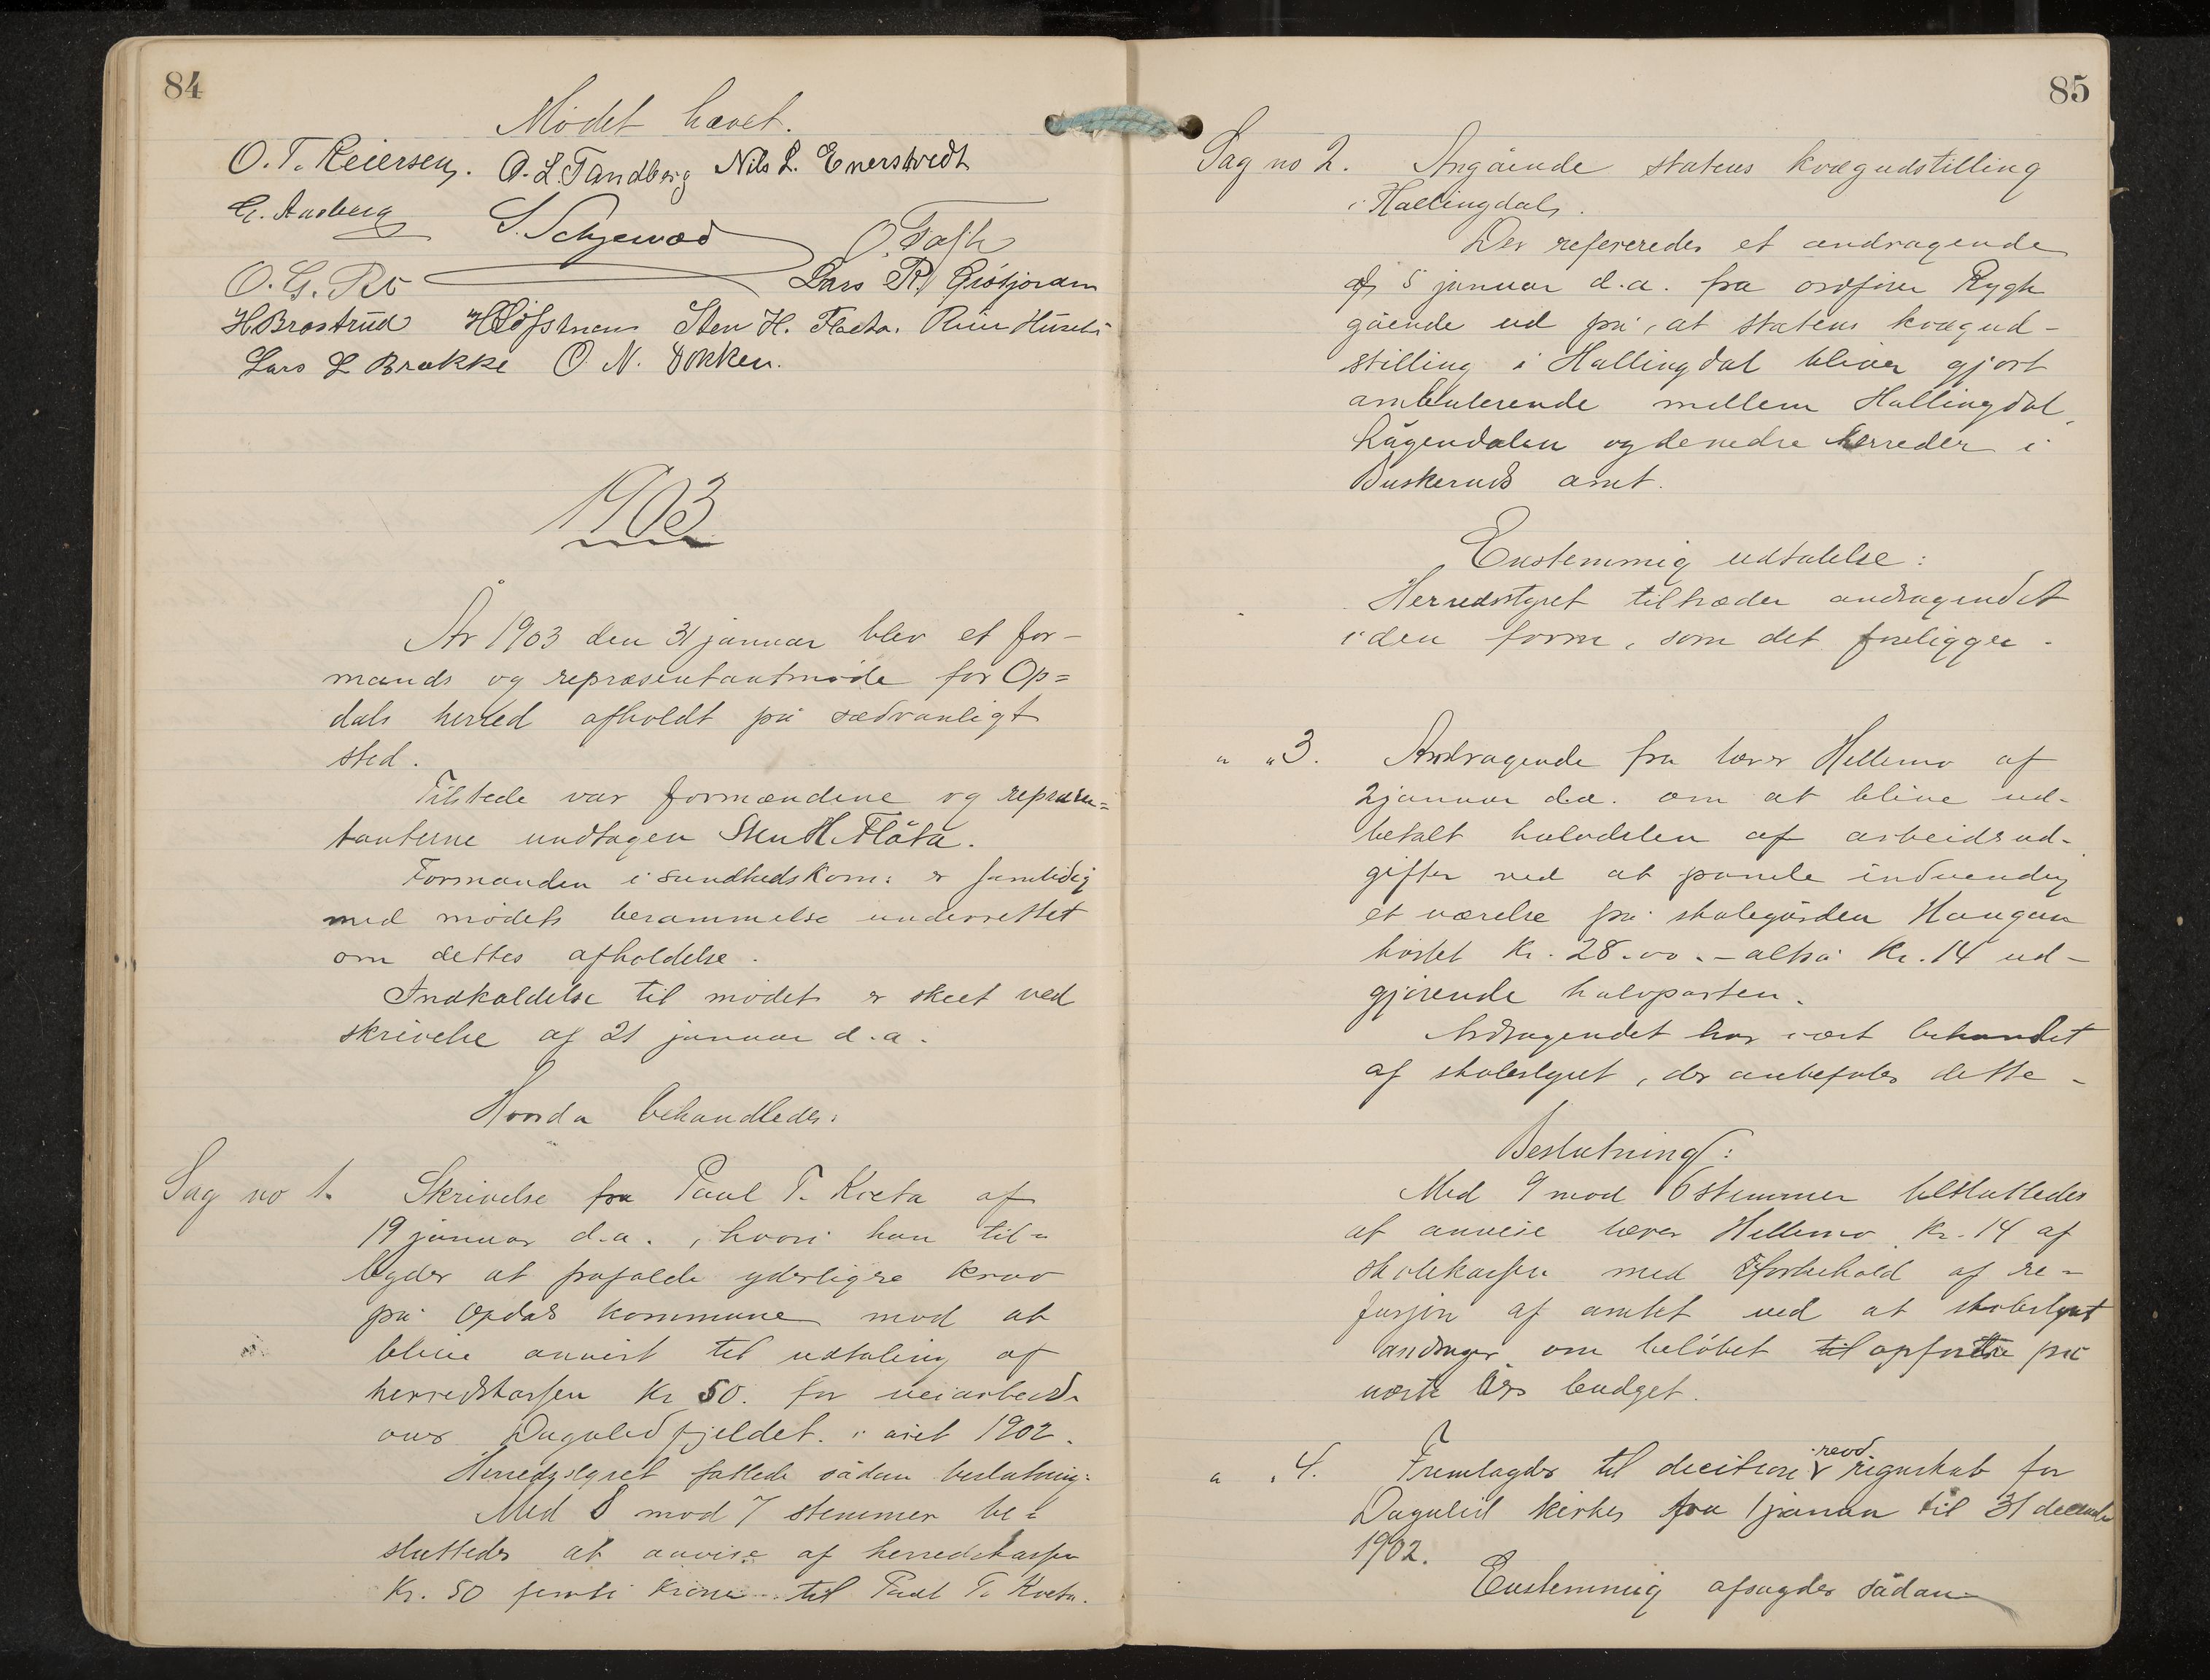 84
Mødet hævet.
O. T. Reiersen. O. L. Tandberg Nils L. Enerstvedt
G. Aasberg S. Schjewad O. Tofte
O. G. Ro Lars R. Grøsjoran
H Brostrud H Løfstuen Sten H. Flaata. Ruu Huseb
Lars L Brække O N. Dokken.
1903
År 1903 den 31 januar blev et for-
mands og repræsentantmøde for Op=
dals herred afholdt på sædvanligt
sted.
Tilstede var formændene og repræsen=
tanterne undtagen Sten H. Flåta.
Formanden i sundhedskom: er samtidig
med mødets berammelse underrettet
om dettes afholdelse.
Indkaldelse til mødet er skeet ved
skrivelse af 21 januar d.a.
Hvorda behandledes:
Sag no 1. Skrivelse fra Paul T. Kveta af
19 januar d.a., hvori han til-
byder at frafalde yderligere krav
på Opdals kommune mod at
blive anvist til udtaling af
herredskassen Kr 50. for veiarbeide
over Dagalidfjeldet i året 1902.
Herredsstyret fattede sådan beslutning:
Med 8 mod 7 stemmer be-
sluttedes at anvise af herredskassen
Kr. 50 femti kroner til Paul T. Kveta.
85
Sag no 2. Angående statens kvægudstilling
i Hallingdal.
Der refereredes et andragende
af 5 januar d.a. fra ordfører Rygh
gående ud på, at statens kvægud-
stilling i Hallingdal bliver gjort
ambulerende mellem Hallingdal,
Lågendalen og de nedre herreder i
Buskeruds amt.
Enstemmig udtalelse:
Herredsstyret tiltræder andragendet
i den form, som det foreligger.
" " 3. Andragende fra lærer Hellemo af
2 januar d.a. om at blive ud-
betalt halvdelen af arbeidsud-
gifter ved at panele indvendig
et værelse på skolegården Haugen
kostet Kr. 28.00. - altså Kr. 14 ud-
gjørende halvparten.
Andragendet har vært behandlet
af skolestyret, der anbefaler dette.
Beslutning:
Med 9 mod 6 stemmer besluttedes
at anvise lærer Hellemo Kr. 14 af
skolekassen med forbehold af re-
fusjon af amtet ved at skolestyret
andrager om beløbet til opførtes på
næste års budget.
" " 4. Fremlagdes til decition revd. regnskab for
Dagalid kirkes fra 1 januar til 31 december
1902.
Enstemmig afsagdes sådan